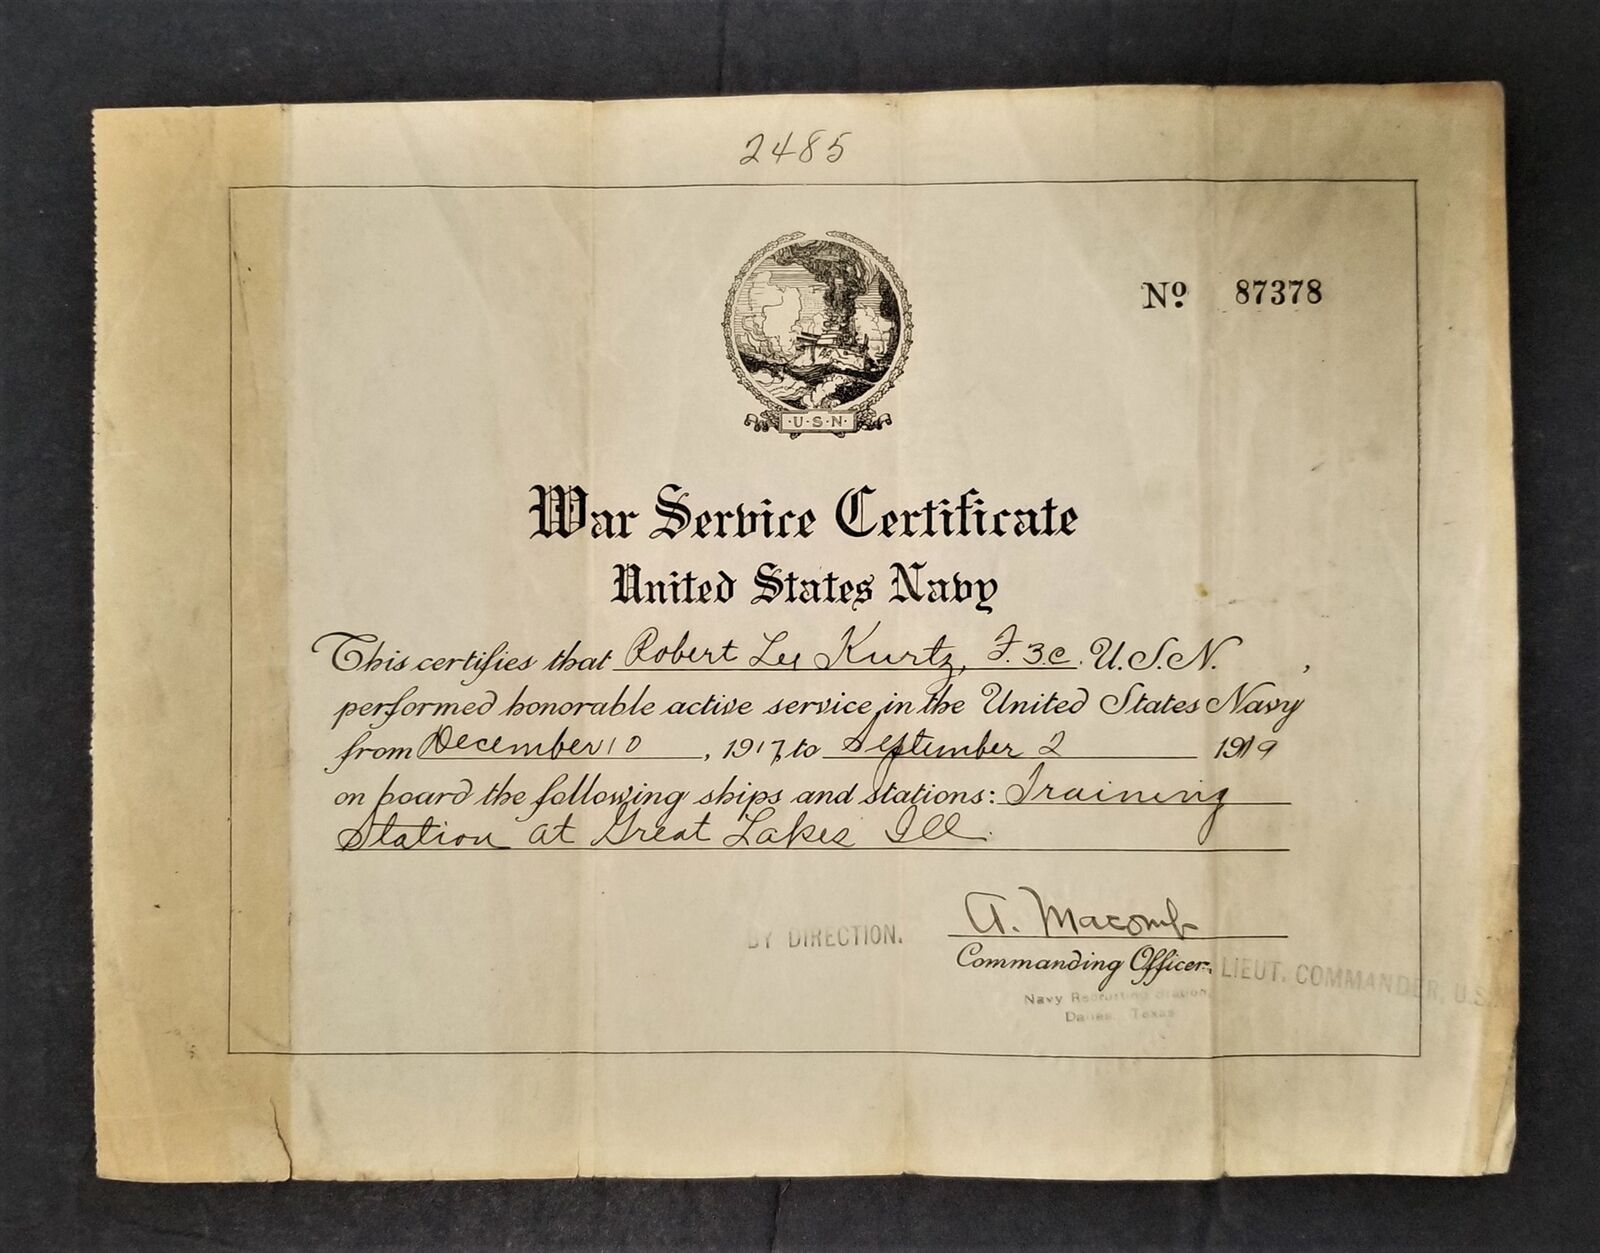 2485
No. 87378
·U·S·N·
War Service Certificate
United States Navy
This certifies that Robert Lee Kurtz, F. 3.c. U.S.N. ,
performed honorable active service in the United States Navy
from December 10, 1917, to September 2 1919
on board the following ships and stations: Training
Station at Great Lakes Ill.
BY DIRECTION.
A. Macomb
Commanding Officer.
LIEUT. COMMANDER, U.S.
Navy Recruiting Station,
Dallas, Texas